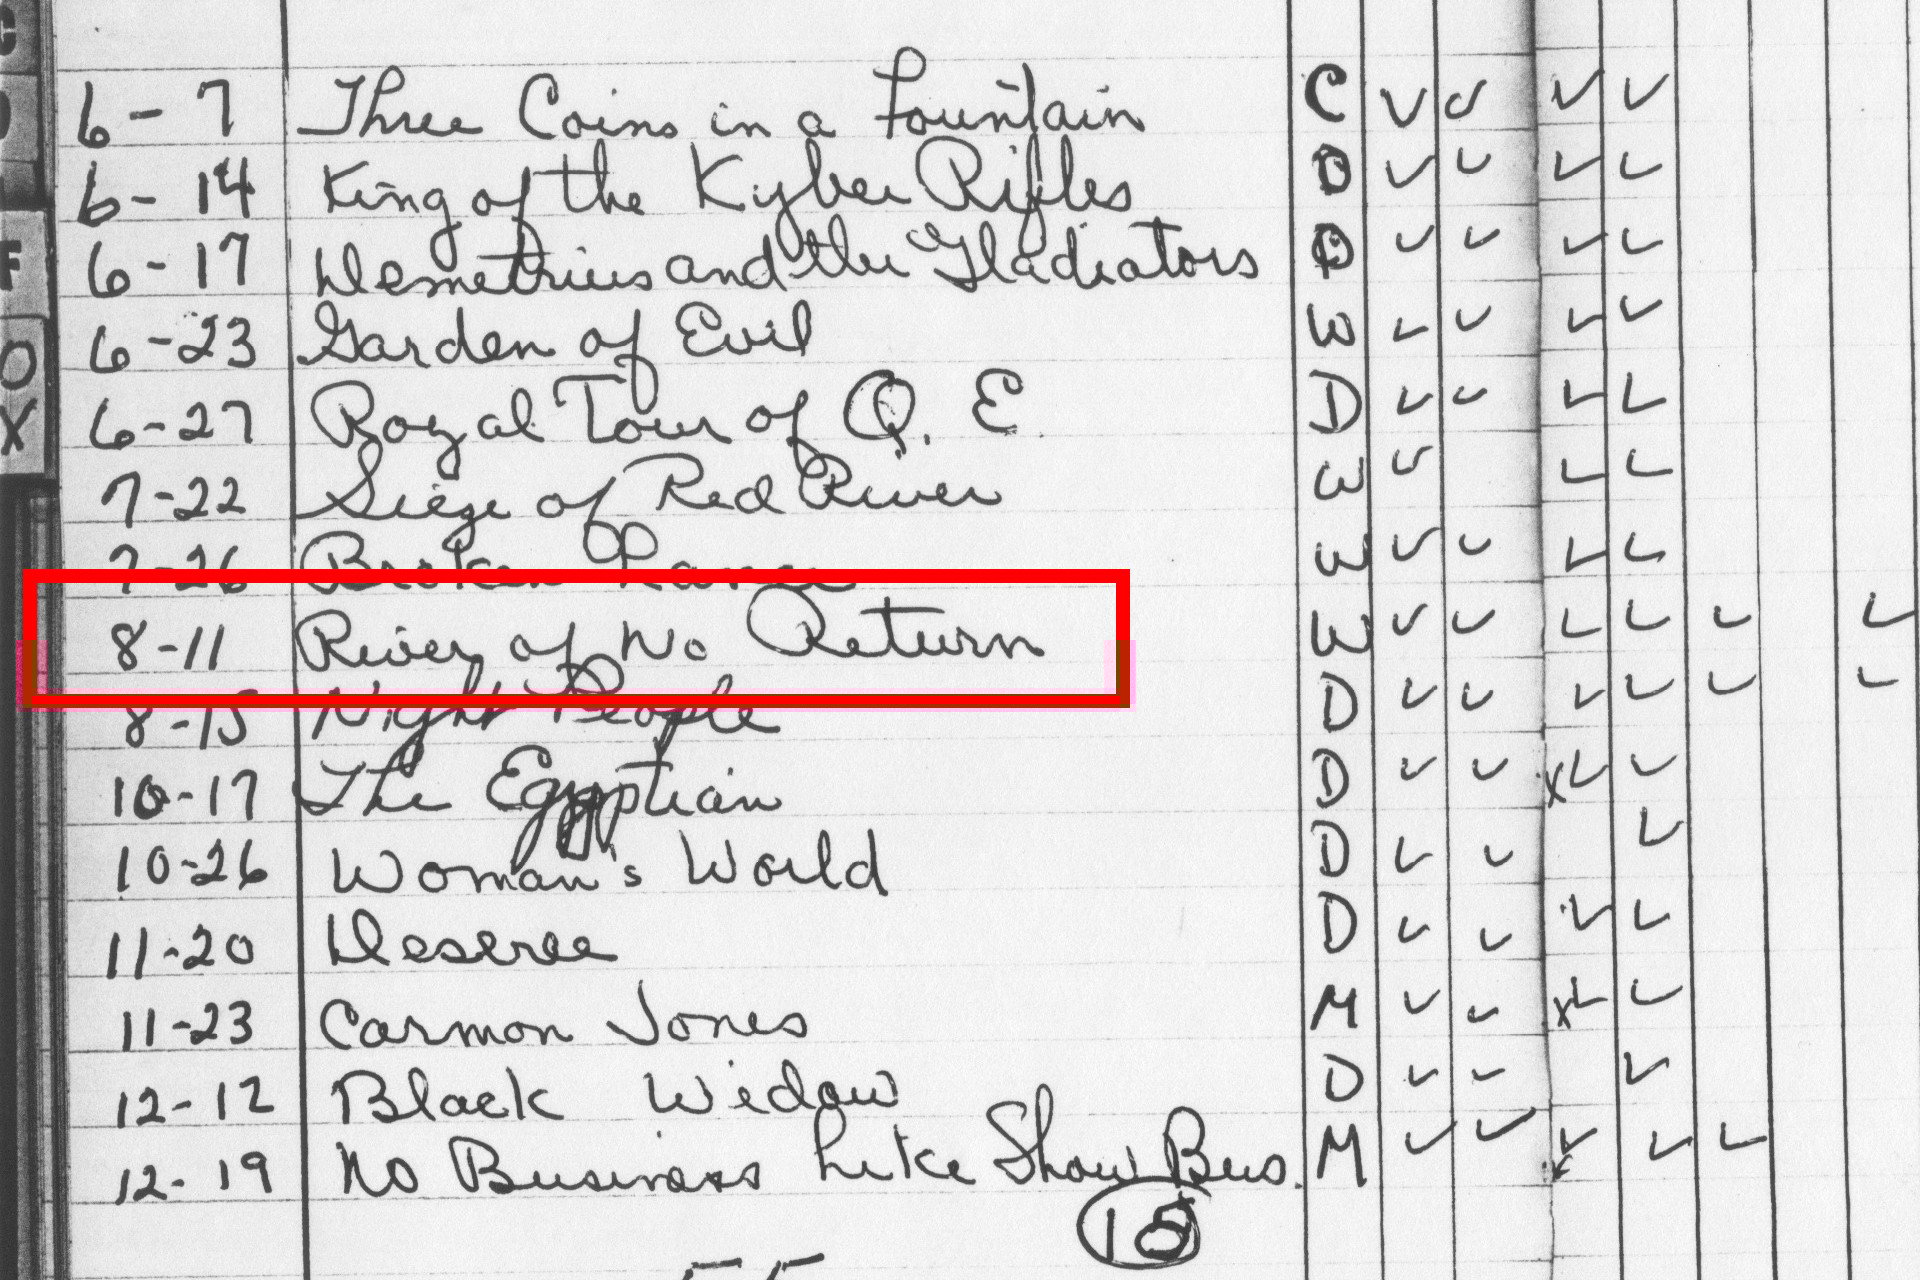 C
O
L
F
O
X
6-7 Three Coins in a Fountain C
6-14 King of the Kyber Rifles D
6-17 Demetrius and the Gladiators D
6-23 Garden of Evil W
6-27 Royal Tour of Q. E D
7-22 Siege of Red River W
7-26 Broken Lance W
8-11 River of No Return W
8-15 Night People D
10-17 The Egyptian D
10-26 Woman's World D
11-20 Desiree D
11-23 Carmon Jones M
12-12 Black Widow D
12-19 No Business Like Show Bus. M
15
55